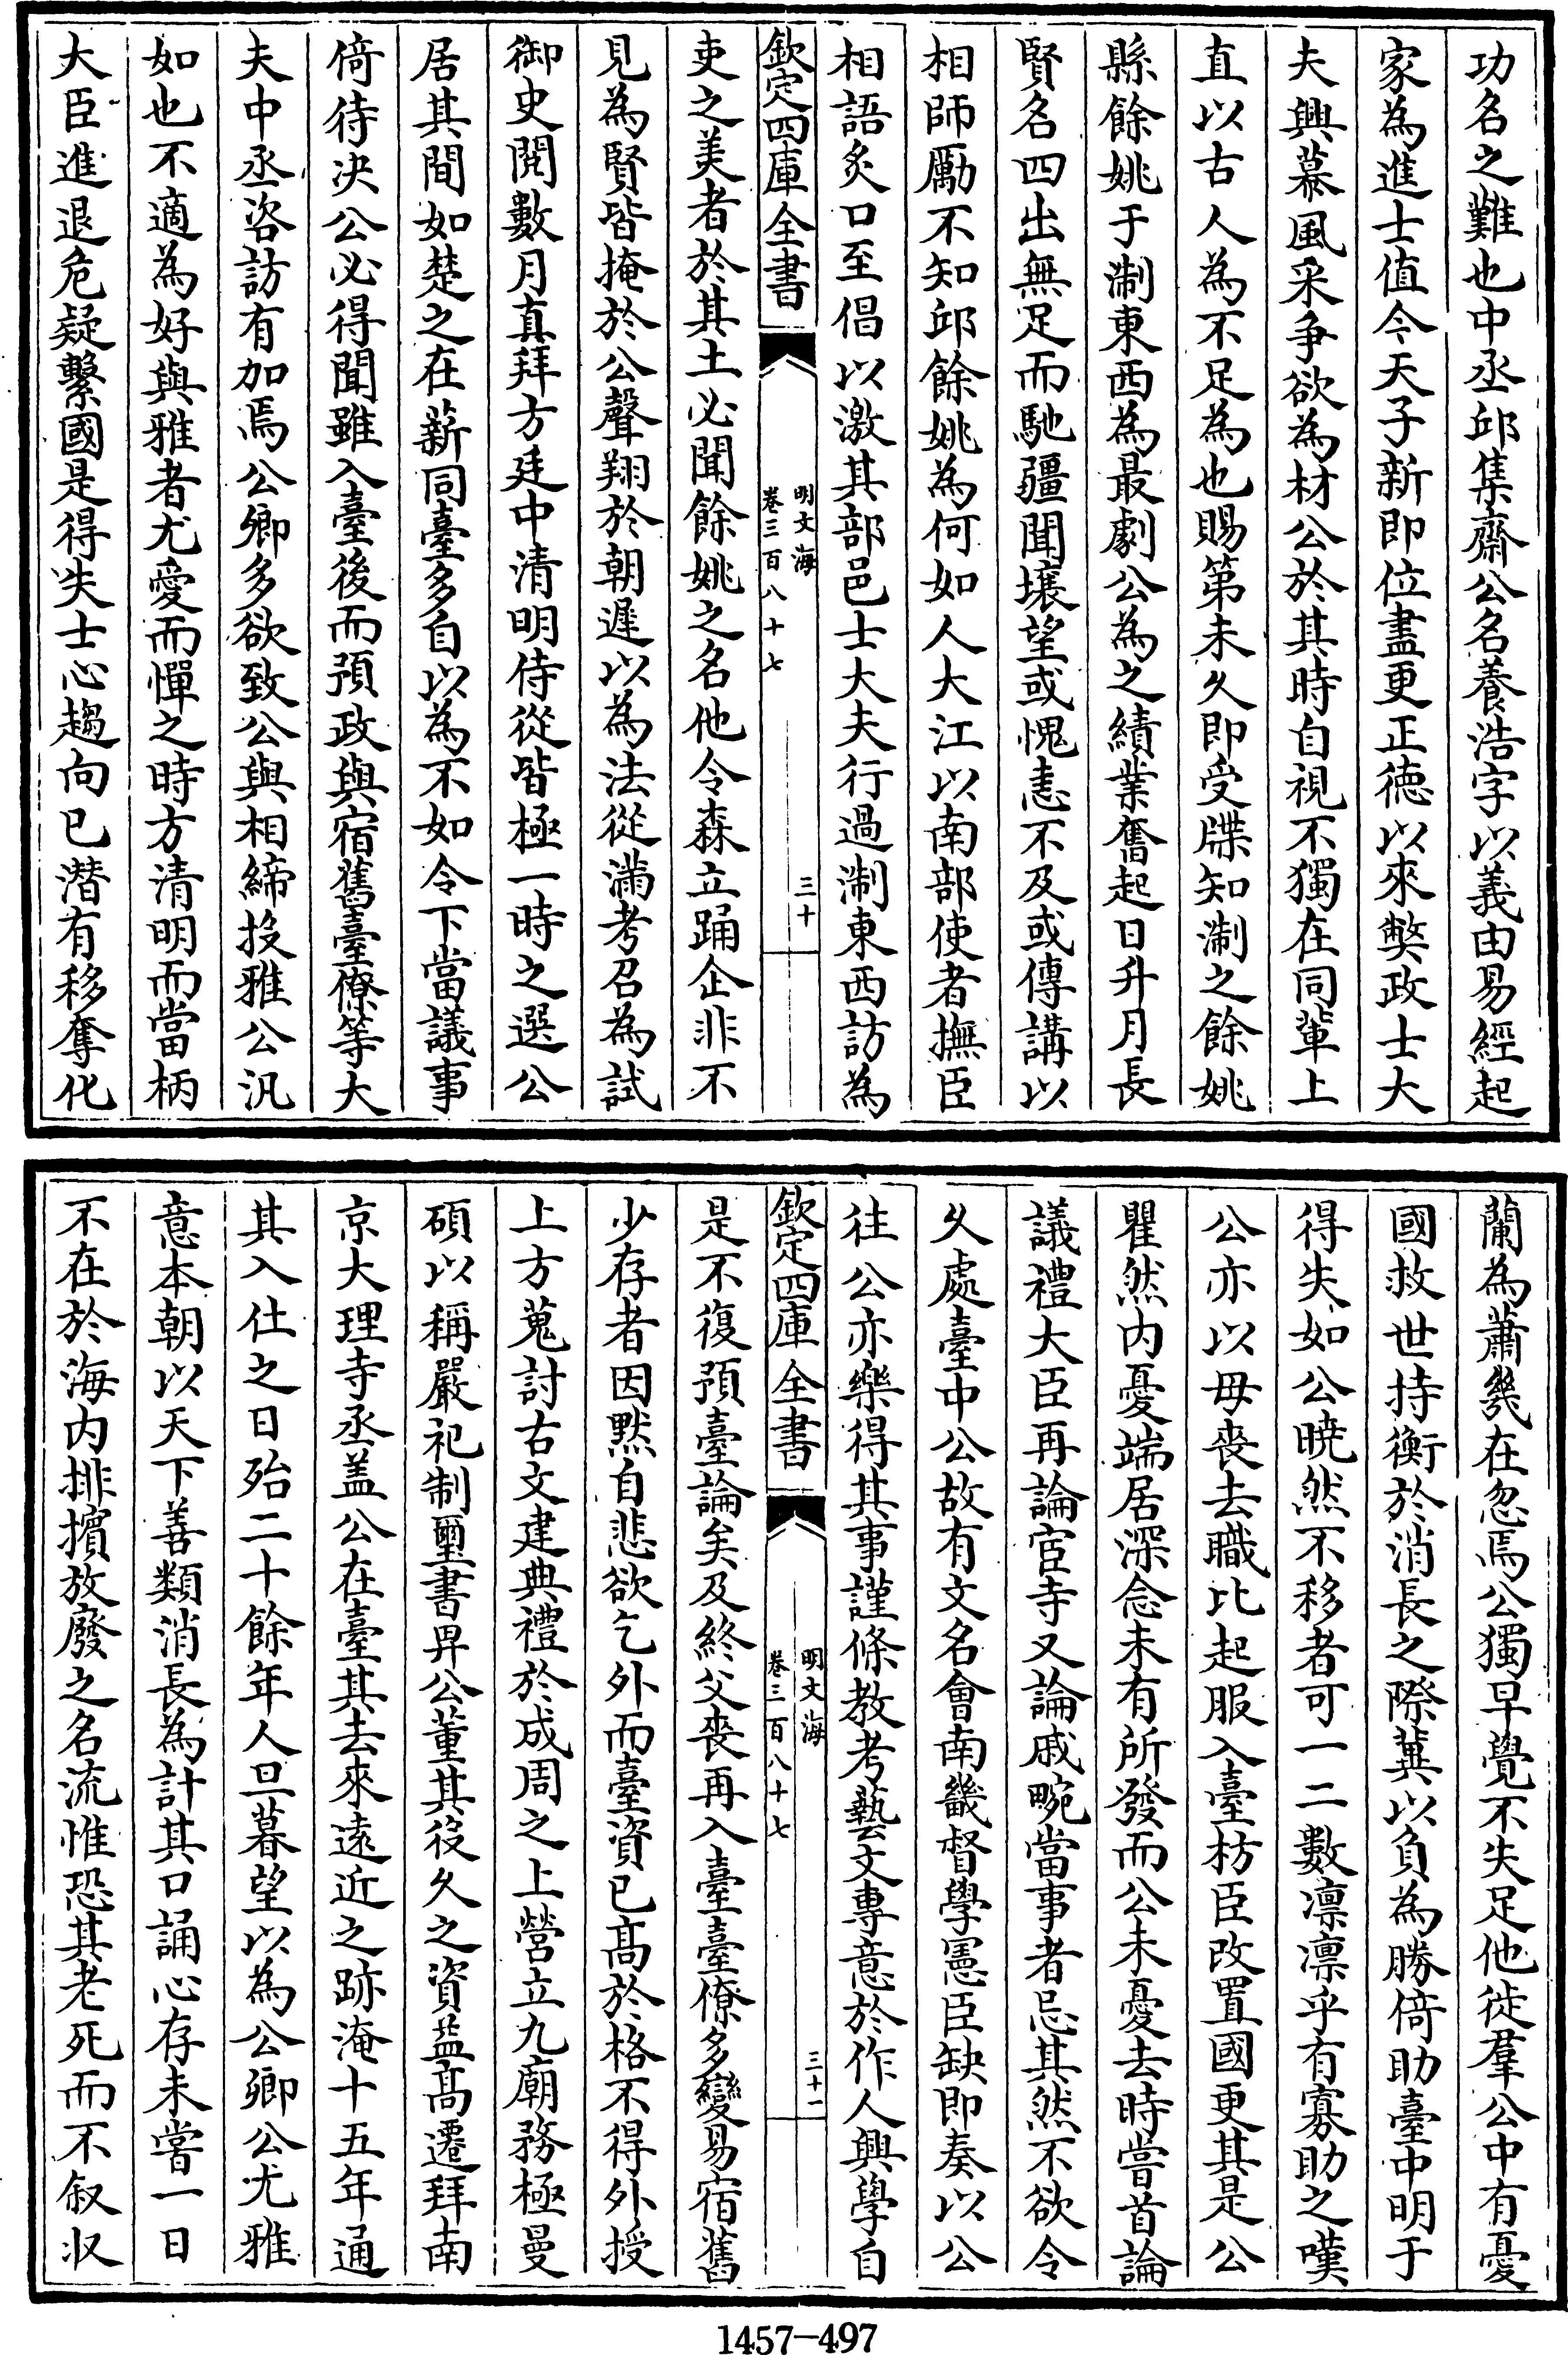 功名之難也中丞邱集齋公名養浩字以義由易經起
家為進士值今天子新即位盡更正德以來弊政士大
夫興慕風采争欲為材公於其時自視不獨在同輩上
直以古人為不足為也賜第未久即受牒知淛之餘姚
縣餘姚于淛東西為最劇公為之績業奮起日升月長
賢名四出無足而馳疆聞壤望或愧恚不及或傳講以
相師勵不知邱餘姚為何如人大江以南部使者撫臣
相語炙口至倡以激其部邑士大夫行過淛東西訪為
欽定四庫全書
明文海
卷三百八十七
三十
吏之美者於其土必聞餘姚之名他令森立踊企非不
見為賢皆掩於公聲翔於朝遲以為法從滿考召為試
御史閲數月真拜方廷中清明侍從皆極一時之選公
居其間如楚之在薪同臺多自以為不如令下當議事
倚待决公必得聞雖入臺後而預政與宿舊臺僚等大
夫中丞咨訪有加焉公卿多欲致公與相締投雅公汎
如也不適為好與雅者尤愛而憚之時方清明而當柄
大臣進退危疑繫國是得失士心趨向已潛有移奪化
蘭為蕭幾在忽焉公獨早覺不失足他徙羣公中有憂
國救世持衡於消長之際冀以負為勝倚助臺中明于
得失如公曉然不移者可一二數凛凛乎有寡助之嘆
公亦以母喪去職比起服入臺枋臣改置國更其是公
瞿然内憂端居深念未有所發而公未憂去時嘗首論
議禮大臣再論宦寺又論戚畹當事者忌其然不欲令
久處臺中公故有文名會南畿督學憲臣缺即奏以公
往公亦樂得其事謹條教考藝文專意於作人興學自
欽定四庫全書
明文海
卷三百八十七
三十一
是不復預臺論矣及終父喪再入臺臺僚多變易宿舊
少存者因黙自悲欲乞外而臺資已髙於格不得外授
上方蒐討古文建典禮於成周之上營立九廟務極曼
碩以稱嚴祀制璽書畀公董其役久之資益髙遷拜南
京大理寺丞盖公在臺其去來遠近之跡淹十五年通
其入仕之日殆二十餘年人旦暮望以為公卿公尤雅
意本朝以天下善類消長為計其口誦心存未嘗一日
不在於海内排擯放廢之名流惟恐其老死而不叙収
1457—497